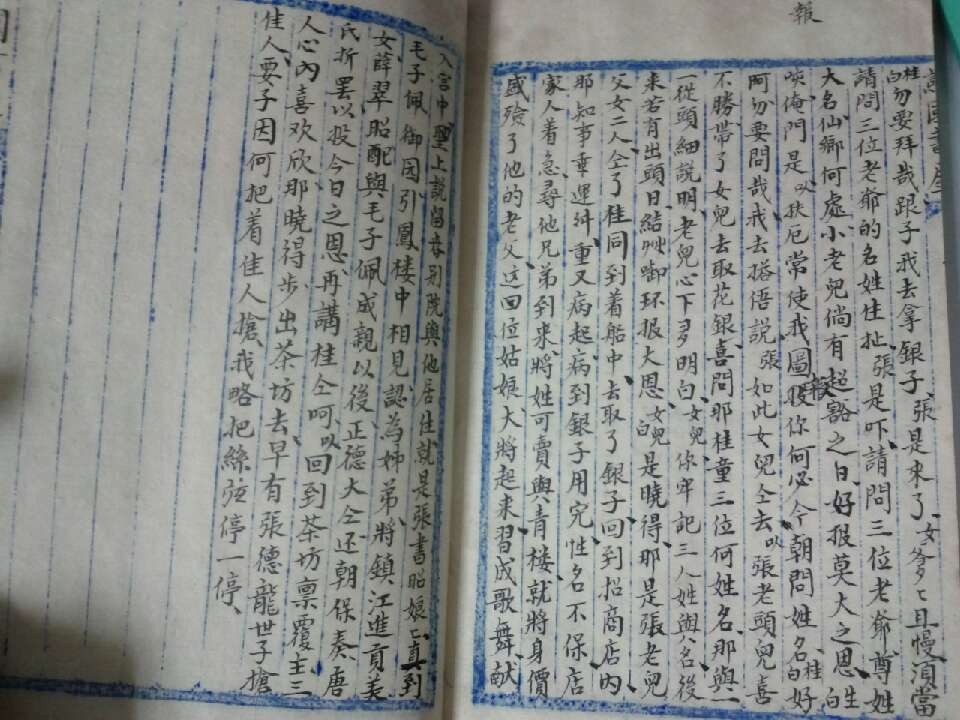 報
桂白勿要拜哉跟子我去拿銀子張是來了女爹〻且慢須當
請問三位老爺的名姓扯張是吓請問三位老爺尊姓
大名仙鄉何處小老兒倘有超豁之日好报莫大之恩生白
唉俺門是以扶厄常使我圖報你何必今朝問姓名桂白好
阿勿要問哉我去搭俉說張如此女兒仝去以張老頭兒喜
不勝帶了女兒去取花銀喜問那桂童三位何姓名那與
一從頭細説明老兒心下多明白女兒你牢記三人姓與名後
来若有出頭日結艸啣环报大恩女兒白是曉得那是張老兒
父女二人仝了桂同到着船中去取了銀子回到招商店内
那知事重運舛重又病起病到銀子用完性名不保店
家人着急尋他兄弟到来將姓可賣與青楼就將身價
盛殮了他的老父這回位姑娘大將起来習成歌舞献
入宫中聖上説留在别院與他居住就是張書昭娘〻直到
毛子佩御园引鳳楼中相見認為姊弟將鎮江進貢美
女薛翠昭配與毛子佩成親以後正德大仝还朝保奏唐
氏折罢以投今日之恩再講桂仝呵以回到茶坊禀覆主三
人心内喜欢欣那曉得步出茶坊去早有張德龍世子搶
佳人要子因何把着佳人搶我略把絲弦停一停